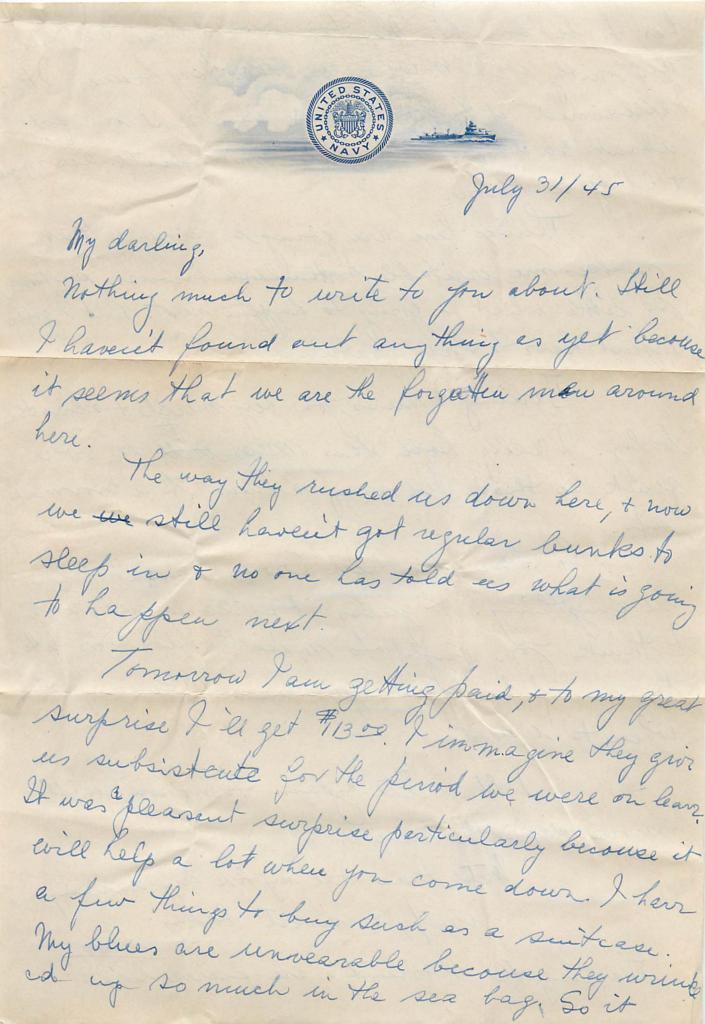 UNITED STATES
NAVY
July 31/45
My darling,
Nothing much to write to you about. Still
I haven't found out anything as yet because
it seems that we are the forgotten men around
here.
The way they rushed us down here, + now
we we still haven't got regular bunks to
sleep in + no one has told us what is going
to happen next.
Tomorrow I am getting paid, + to my great
surprise I'll get $13.00. I immagine they give
us subsistence for the period we were on leave.
It was a pleasant surprise particularly because it
will help a lot when you come down. I have
a few things to buy such as a suitcase.
My blues are unwearable because they wrinkl
ed up so much in the sea bag. So it